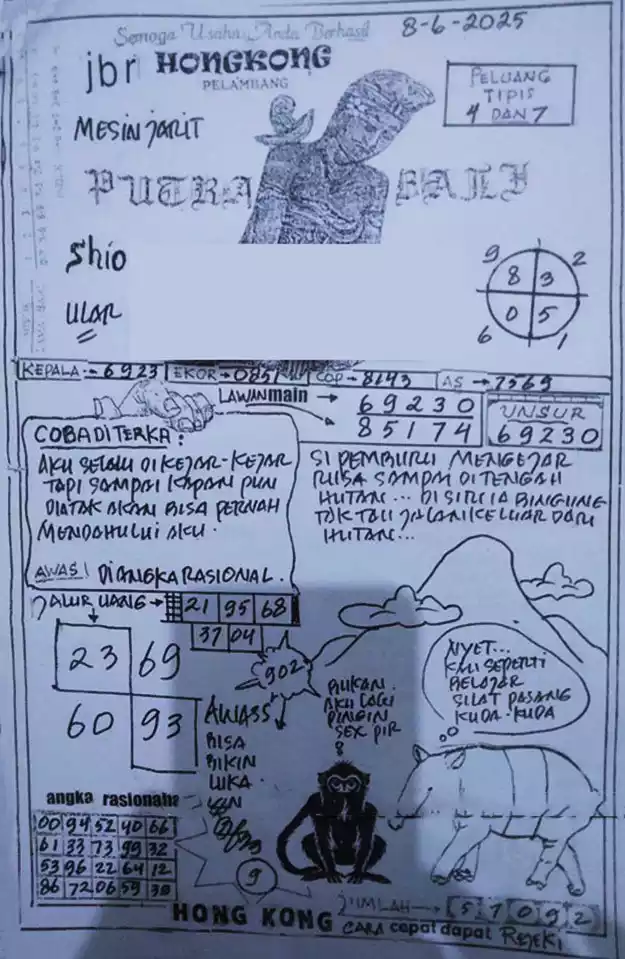 Semoga Usaha Anda Berhasil
8-6-2025
jbr HONGKONG
PELAMBANG
PELUANG
TIPIS
4 DAN 7
MESIN JARIT
PUTRA BALI
Shio
ULAR
9 2
8 3
0 5
6 1
KEPALA:- 6923 EKOR→0851 COP→8143 AS→7569
LAWAN main → 69230
85174
UNSUR
69230
COBA DITERKA:
AKU SELALU DI KEJAR-KEJAR
TAPI SAMPAI KAPAN PUN
DIA TAK AKAN BISA PERNAH
MENDAHULUI AKU.
AWAS! DIANGKA RASIONAL.
SI PEMBURU MENGEJAR
RUSA SAMPAI DITENGAH
HUTAN... DI SITU IA BINGUNG
TAK TAU JALAN KELUAR DARI
HUTAN...
JALUR UANG→ 21 95 68
37 04
23 69
60 93
902
AWASS
BISA
BIKIN
LUKA
BUKAN.
AKU LAGI
PINGIN
SEX PIR
NYET...
KAU SEPERTI
BELAJAR
SILAT PASANG
KUDA-KUDA
angka rasional
00 94 52 40 66
61 33 73 99 32
53 96 22 64 12
86 72 06 59 38
9
JUMLAH→ 5 7 0 9 2
HONG KONG CARA cepat dapat REJEKI